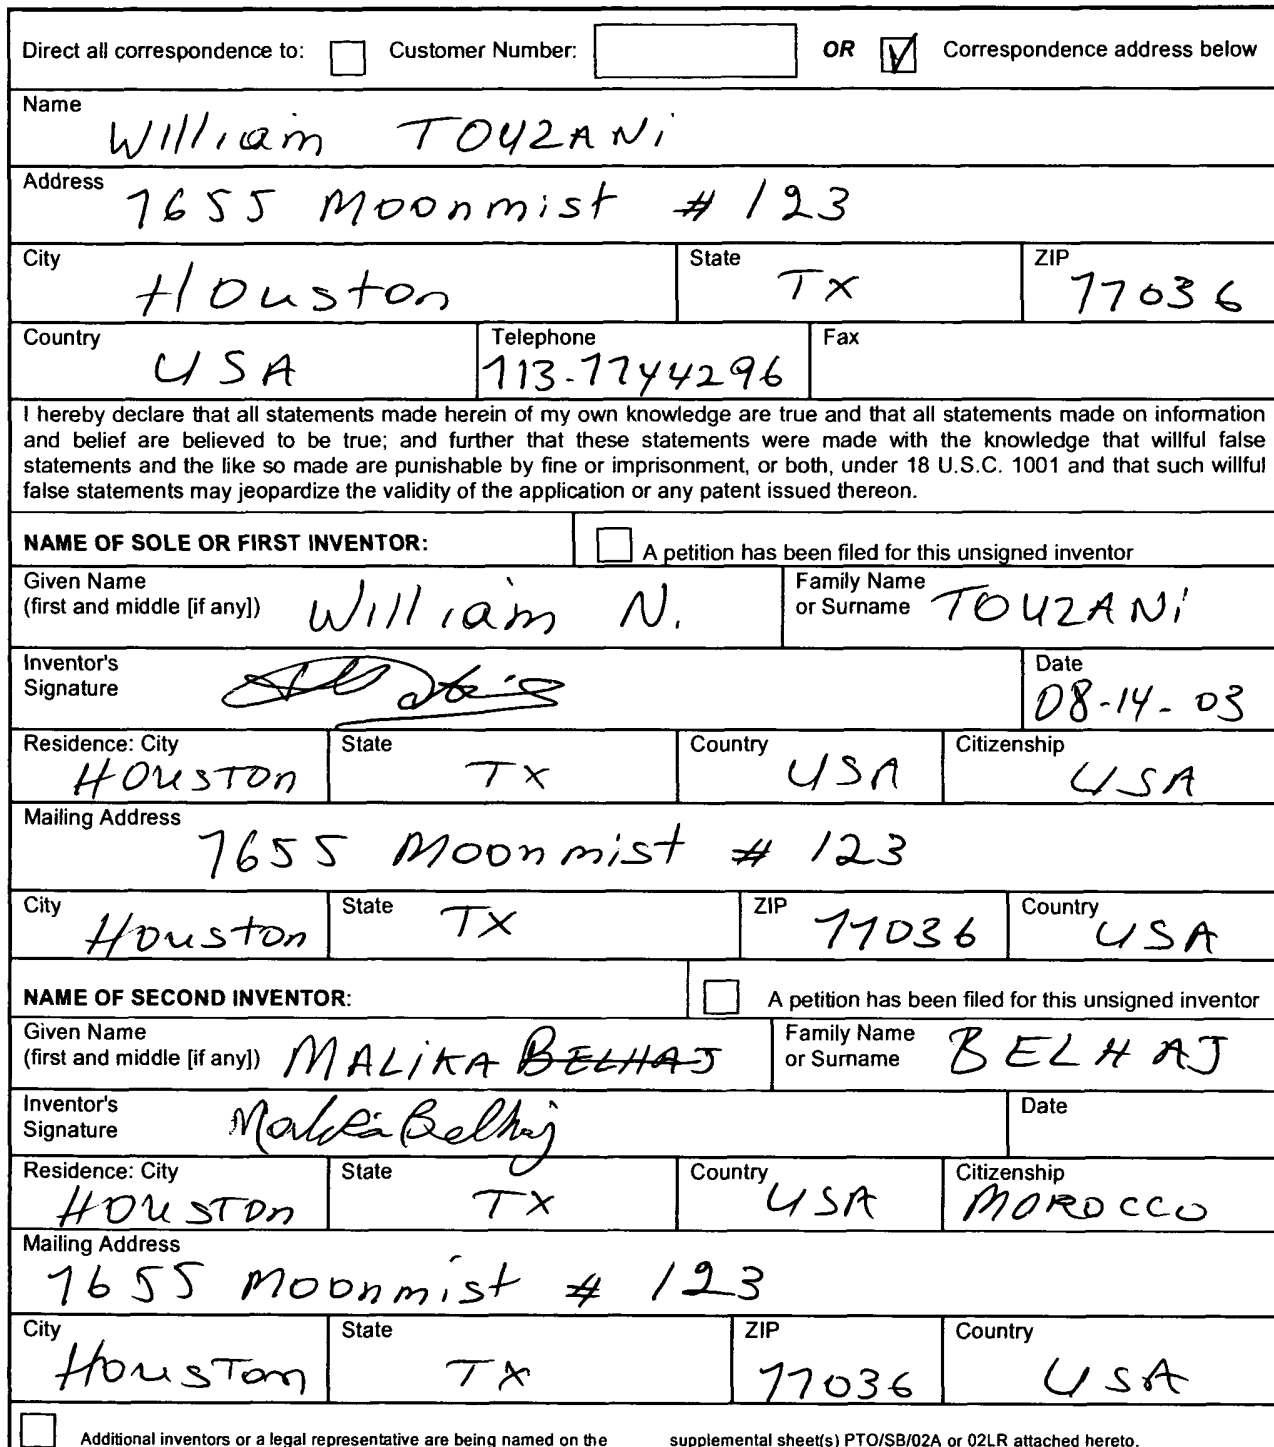 Direct all correspondence to: Customer Number: OR Correspondence address below
Name
William TOUZANi
Address
7655 Moonmist # 123
City State ZIP
Houston TX 77036
Country Telephone Fax
USA 713-7744296
I hereby declare that all statements made herein of my own knowledge are true and that all statements made on information
and belief are believed to be true; and further that these statements were made with the knowledge that willful false
statements and the like so made are punishable by fine or imprisonment, or both, under 18 U.S.C. 1001 and that such willful
false statements may jeopardize the validity of the application or any patent issued thereon.
NAME OF SOLE OR FIRST INVENTOR: A petition has been filed for this unsigned inventor
Given Name Family Name
(first and middle [if any]) William N. or Surname TOUZANi
Inventor's Date
Signature 08-14-03
Residence: City State Country Citizenship
HOUSTON TX USA USA
Mailing Address
7655 Moonmist # 123
City State ZIP Country
Houston TX 77036 USA
NAME OF SECOND INVENTOR: A petition has been filed for this unsigned inventor
Given Name Family Name
(first and middle [if any]) MALiKA BELHAJ or Surname BELHAJ
Inventor's Date
Signature Malika Belhaj
Residence: City State Country Citizenship
HOUSTON TX USA MOROCCO
Mailing Address
7655 Moonmist # 123
City State ZIP Country
Houston TX 77036 USA
Additional inventors or a legal representative are being named on the supplemental sheet(s) PTO/SB/02A or 02LR attached hereto.